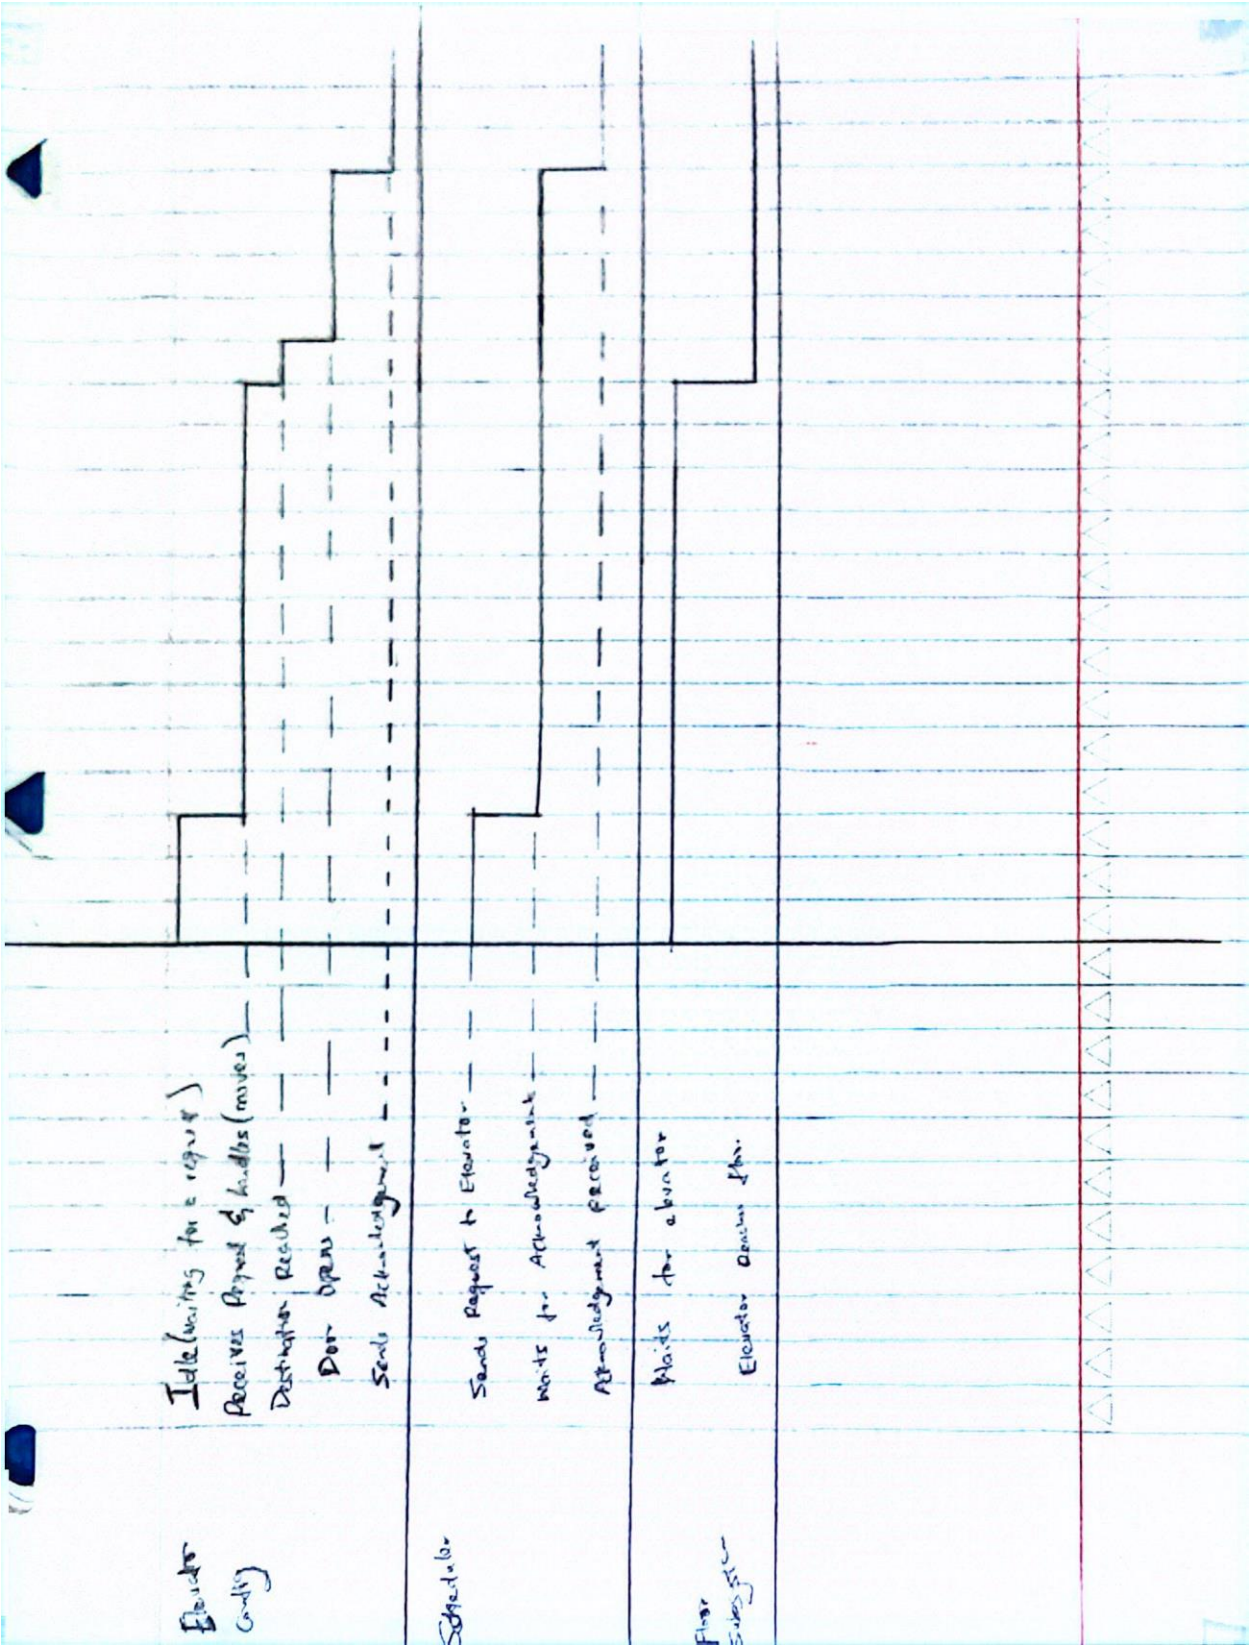 Elevator
Config
Idle (waiting for a request)
Receives Request & handles (moves)
Destination Reached
Door opens
Sends Acknowledgement
Scheduler
Sends Request to Elevator
Waits for Acknowledgement
Acknowledgement received
Floor
Waits for elevator
Elevator reaches floor.